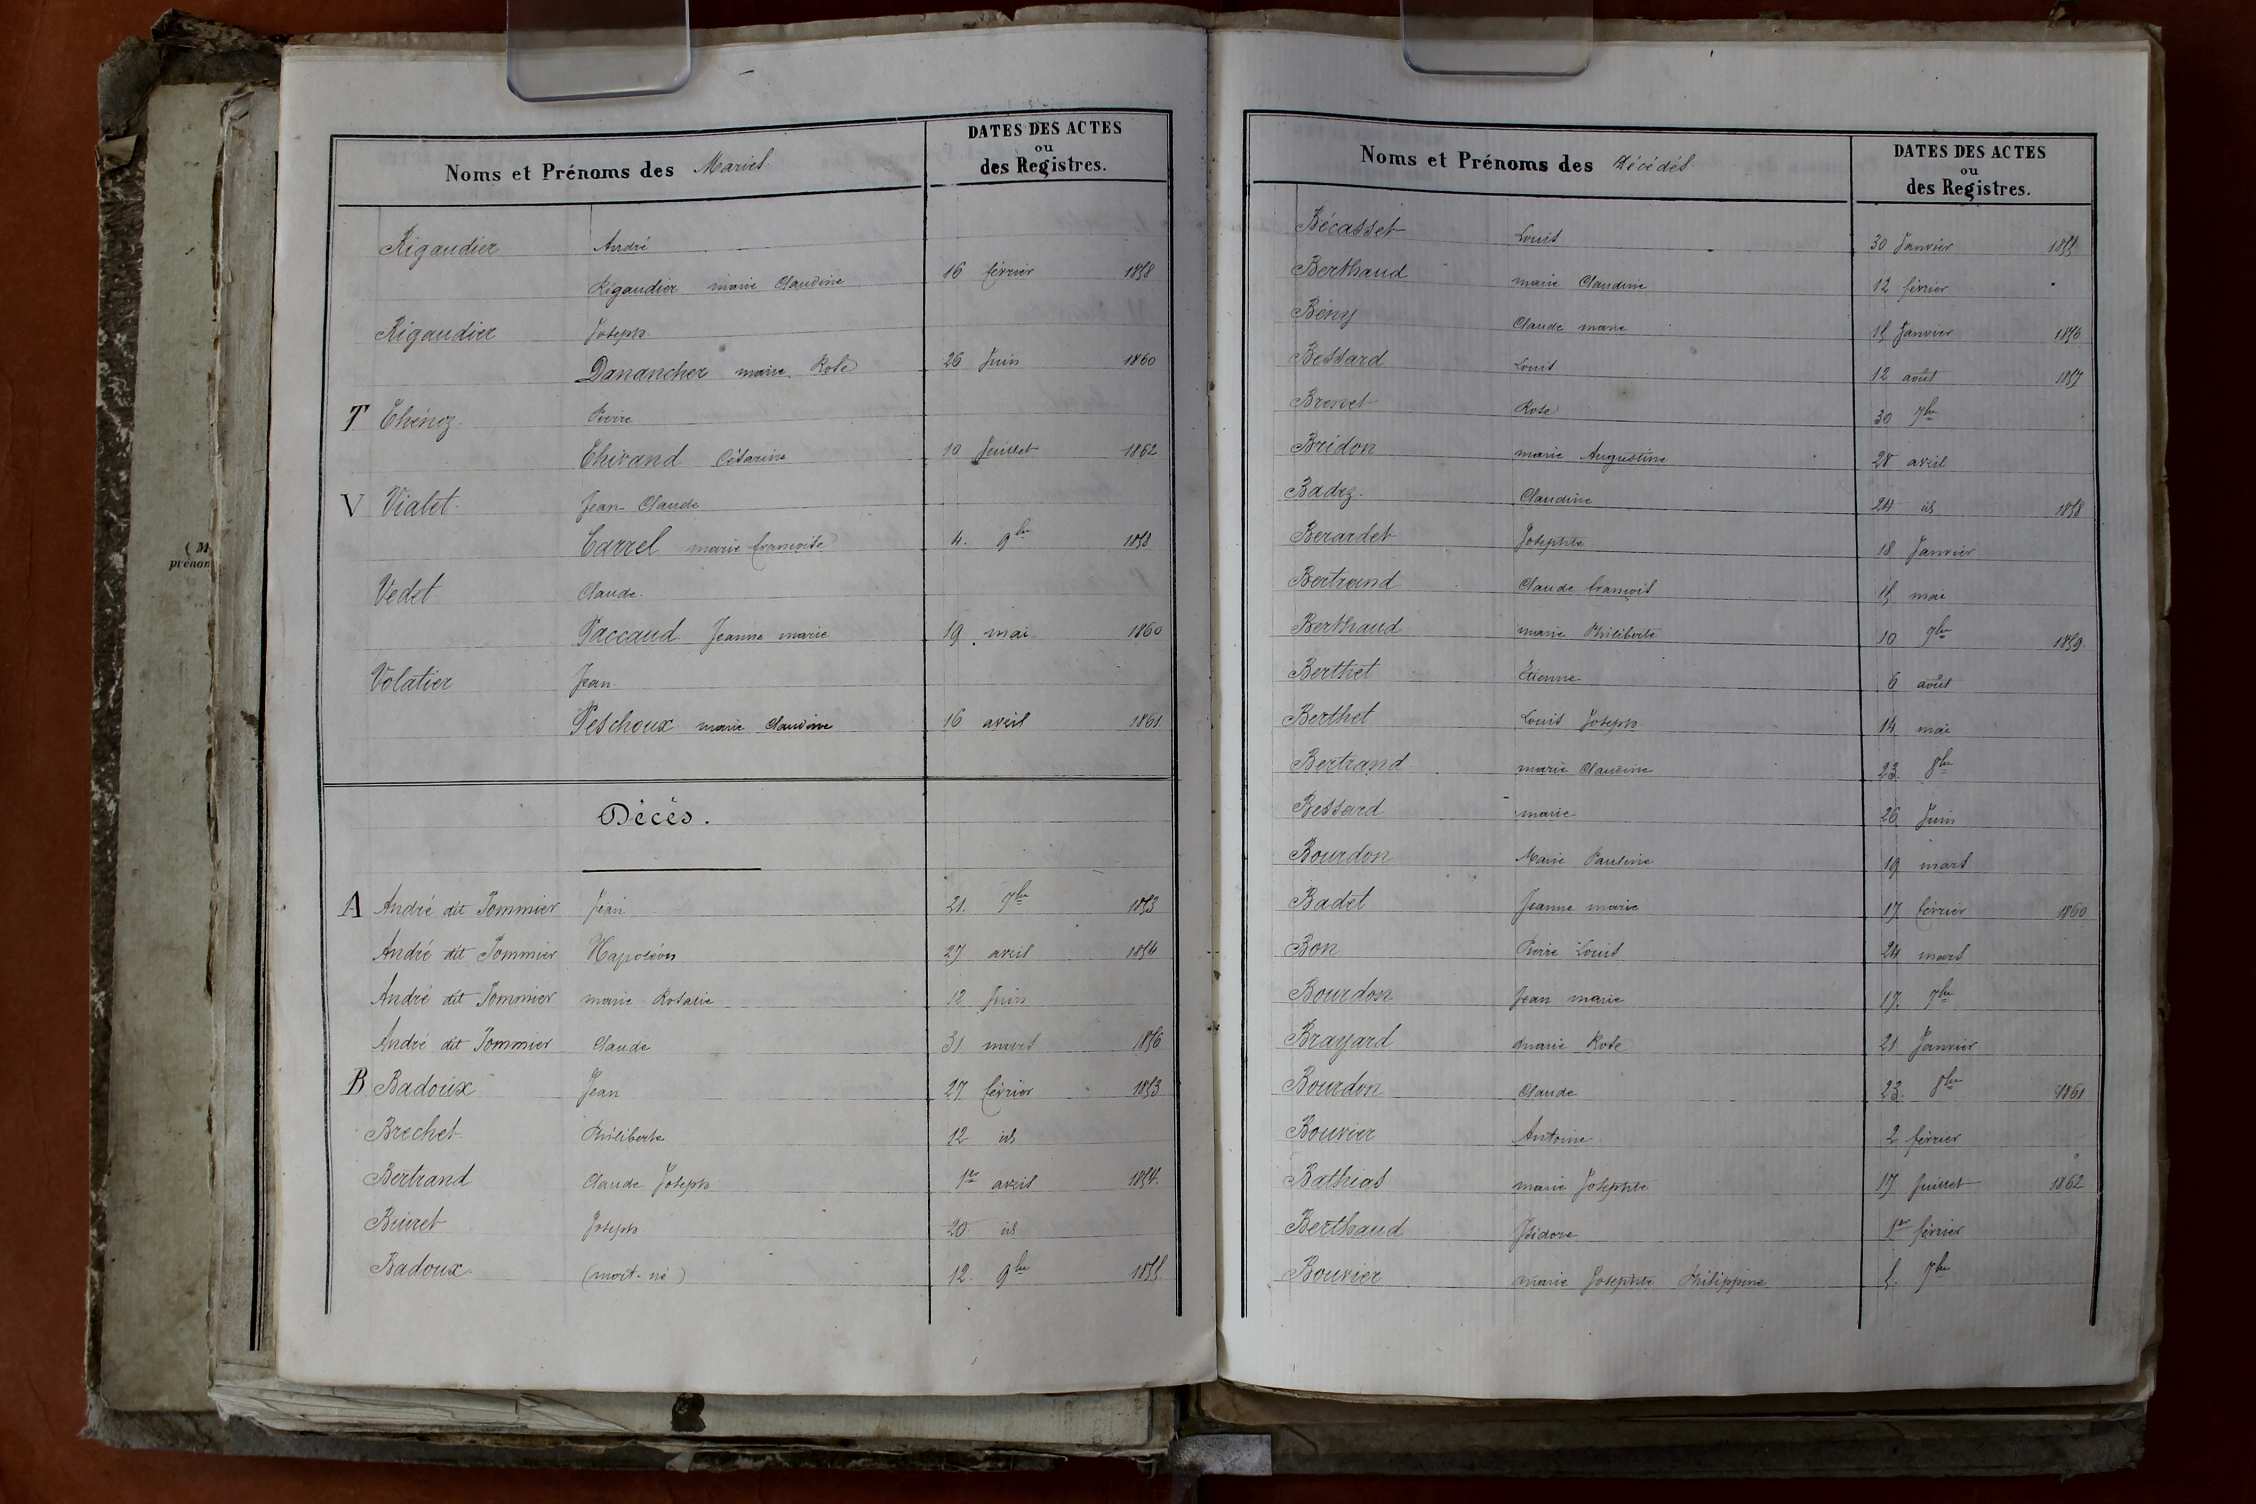 (M
prénom
Noms et Prénoms des Mariés
DATES DES ACTES
ou
des Registres.
Rigaudier André
Rigaudier marie Claudine 16 février 1858
Rigaudier Joseph
Danancher marie Rose 26 Juin 1860
T Chénoz Pierre
Chevrand Césarine 10 Juillet 1862
V Vialet Jean Claude
Carrel marie françoise 4 9bre 1858
Vedet Claude
Paccaud Jeanne marie 19 mai 1860
Volatier Jean
Peschoux marie Claudine 16 avril 1861
Décès.
A André dit Pommier Jean 21 7bre 1853
André dit Pommier Napoléon 27 avril 1854
André dit Pommier marie Rosalie 12 Juin
André dit Pommier Claude 31 mars 1856
B Badoux Jean 27 février 1853
Brechet Philiberte 12 id
Bertrand Claude Joseph 1er avril 1854
Buiret Joseph 20 id
Badoux (mort-né) 12 9bre 1855
Noms et Prénoms des Décédés
DATES DES ACTES
ou
des Registres.
Bécasset Louis 30 Janvier 1855
Berthaud marie Claudine 12 février
Bény Claude marie 15 Janvier 1856
Bessard Louis 12 août 1857
Brevet Rose 30 7bre
Bridon marie Augustine 28 avril
Badez Claudine 24 id 1858
Berardet Josephte 18 Janvier
Bertrand Claude françois 15 mai
Berthaud marie Philiberte 10 9bre 1859
Berthet Etienne 6 août
Berthet Louis Joseph 14 mai
Bertrand marie Claudine 23 8bre
Bessard marie 26 Juin
Bourdon Marie Pauline 19 mars
Badel Jeanne marie 17 février 1860
Bon Pierre Louis 24 mars
Bourdon Jean marie 17 7bre
Brayard marie Rose 21 Janvier
Bourdon Claude 23 8bre 1861
Bouvier Antoine 2 février
Bathias marie Josephte 17 Juillet 1862
Berthaud Isidore 1er février
Bouvier marie Josephte Philippine 5 7bre